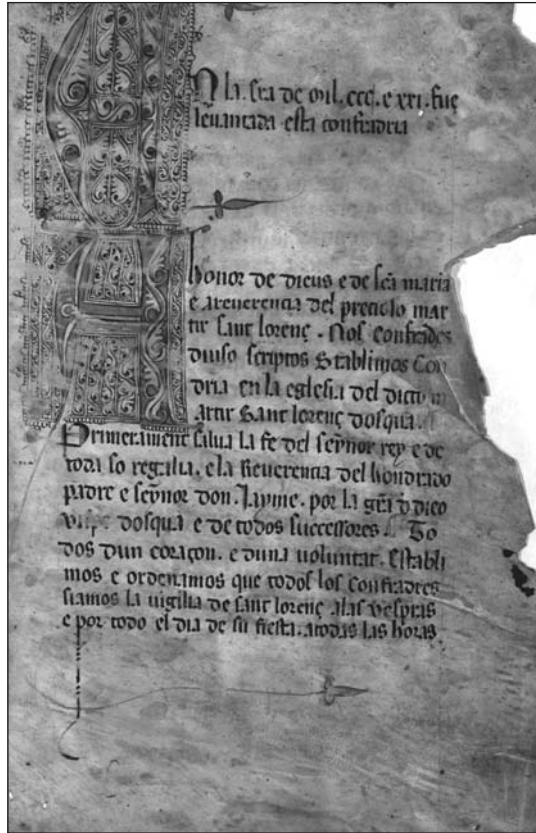 N la. era de mil. ccc. e xxi. fue
levantada esta confradria
honor de dieus e de scã maria
e a reverencia del precioso mar
tir sant lorenç. Nos confrades
diuso scriptos Stablimos Con
dria en la eglesia del dicto m
artir Sant lorenç dosqua.
Primerament salua la fe del seynor rey e de
toda so regalia. e la Reverencia del hondrado
padre e seynor don. Jayme. por la grã d dieo
dosqua e de todos successores. To
dos dun coraçon. e duna uoluntat. Establi
mos e ordenamos que todos los Confradres
siamos la uigilia de sant lorenç alas vespras
e por todo el dia de su fiesta. atodas las horas